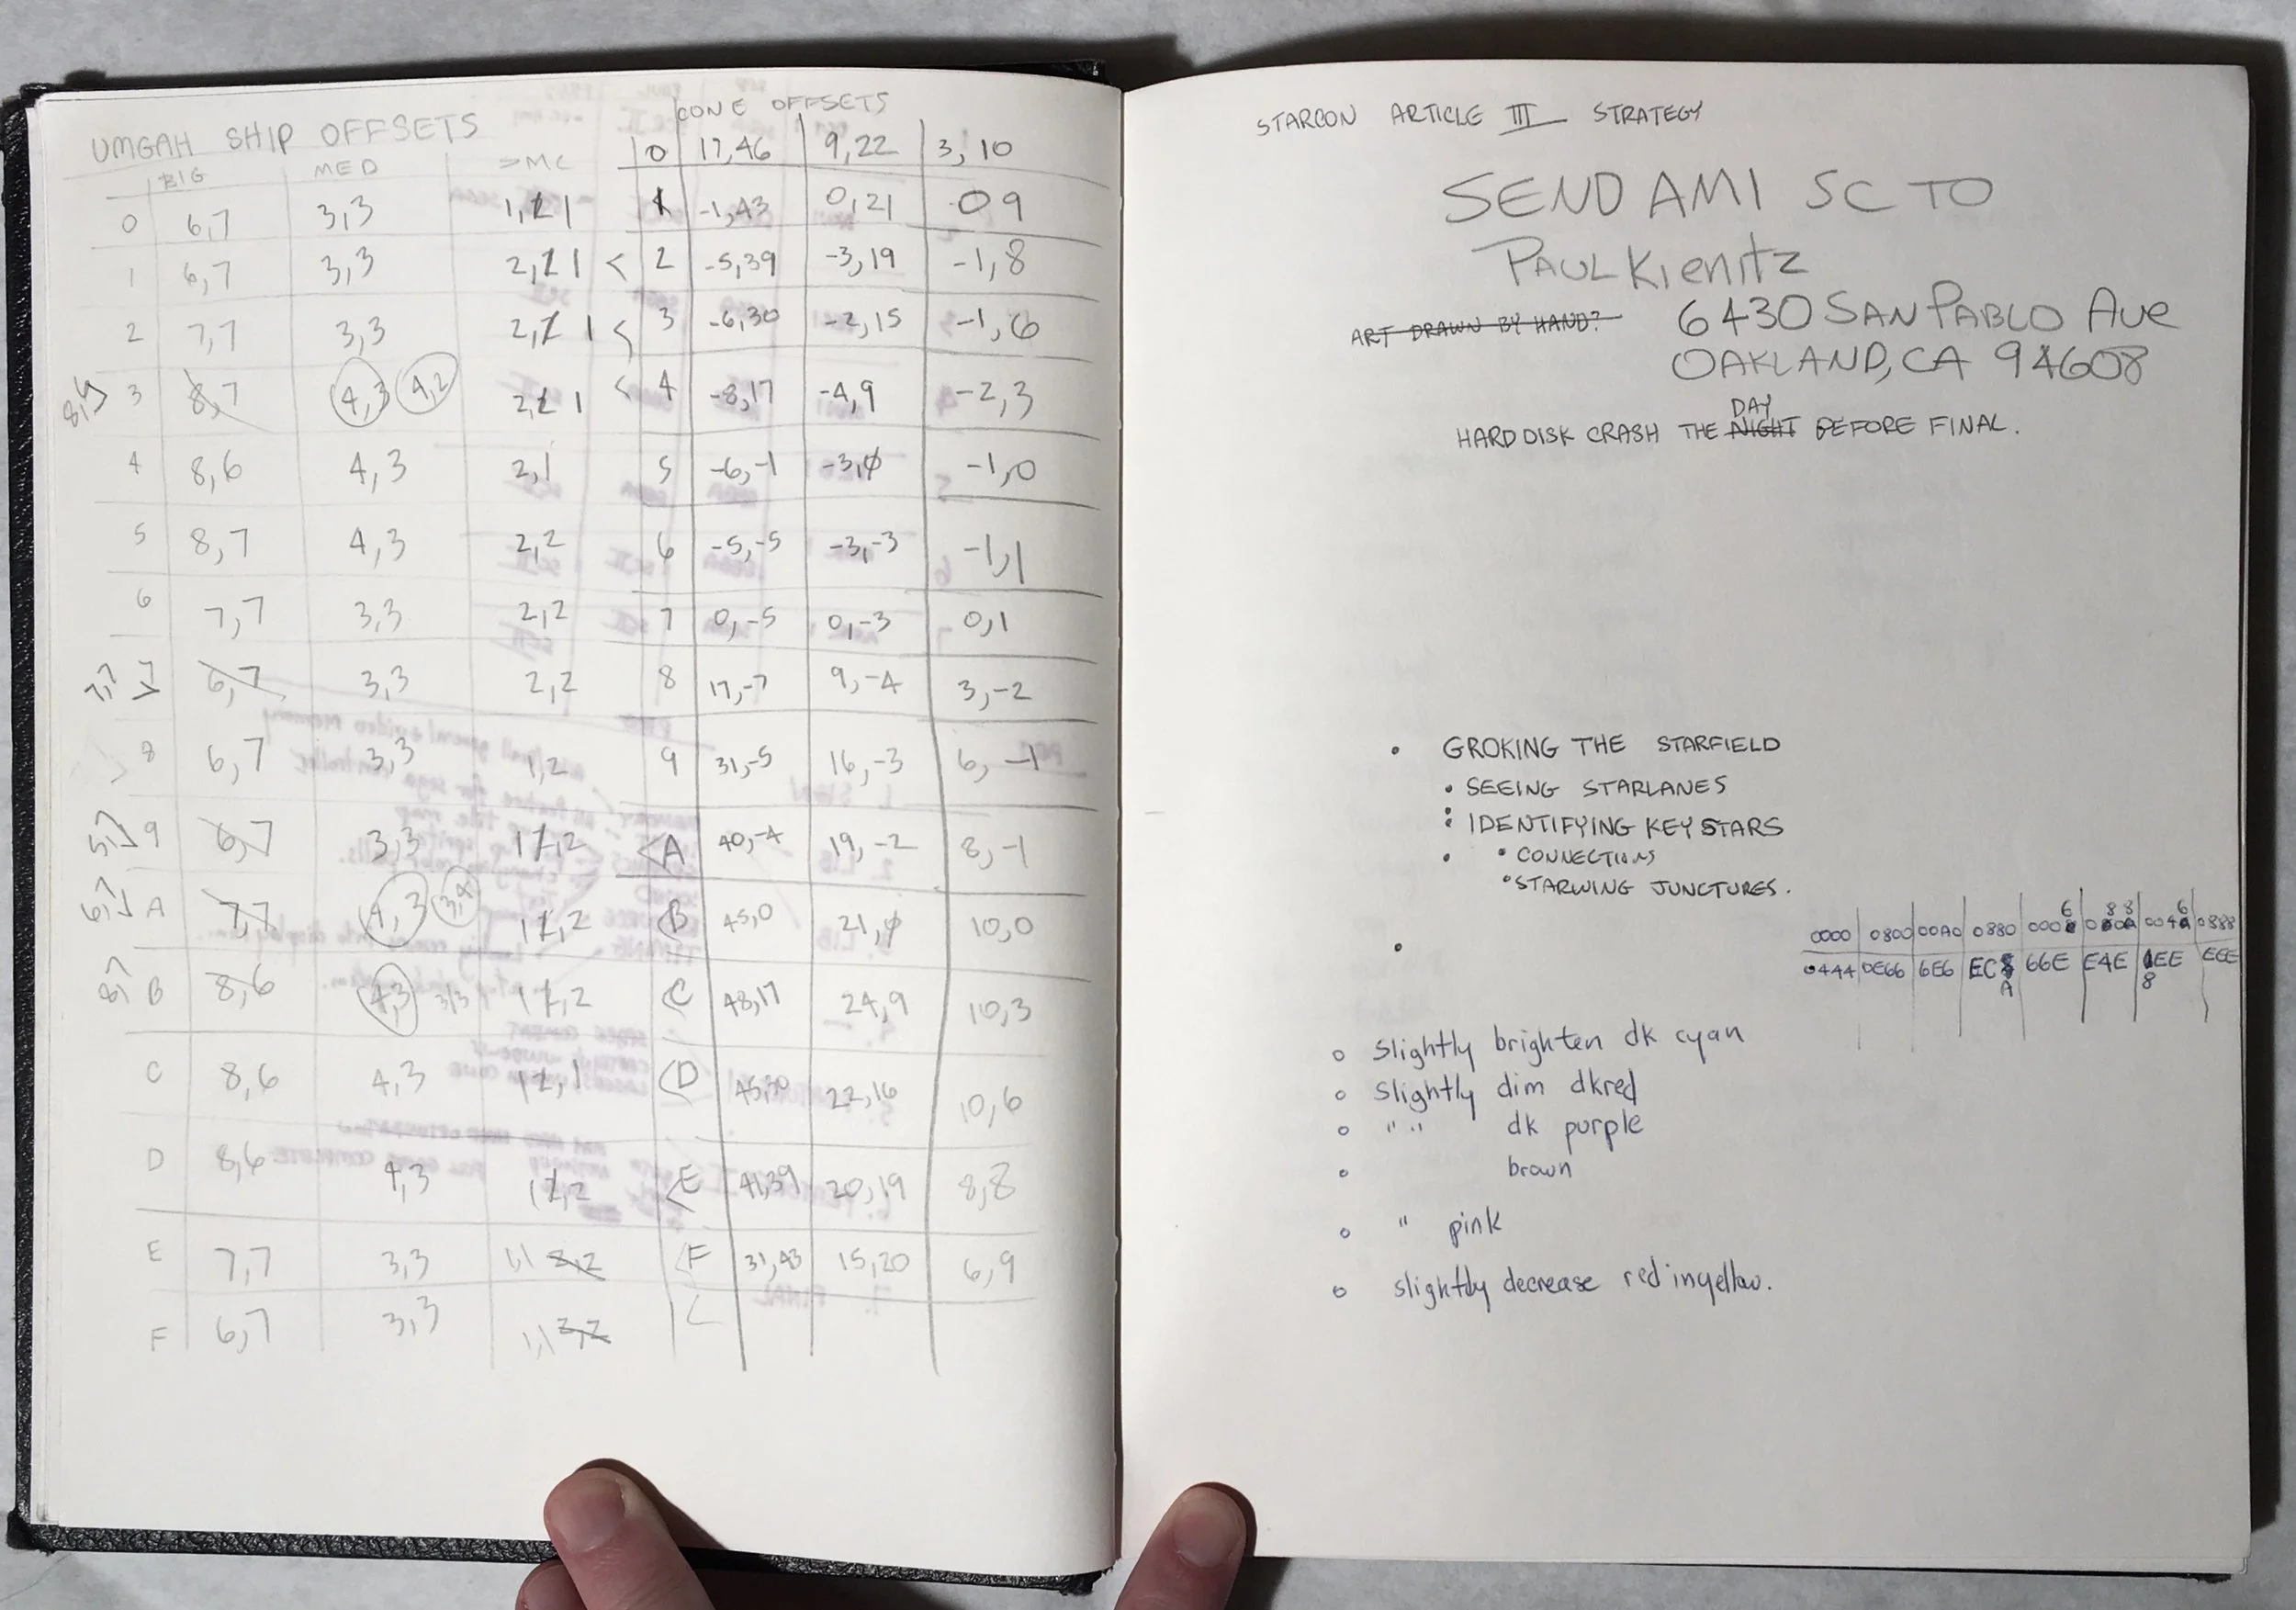 UMGAH SHIP OFFSETS
BIG MED
0 6,7 3,3 1,1
1 6,7 3,3 2,1
2 7,7 3,3 2,1
8,6 3 8,7 4,3 4,2 2,1
4 8,6 4,3 2,1
5 8,7 4,3 2,2
6 7,7 3,3 2,2
7,7 7 6,7 3,3 2,2
8 6,7 3,3 1,2
5,7 9 6,7 3,3 1,2
6,7 A 7,7 4,3 1,2
8,7 B 8,6 4,3 3,3 1,2
C 8,6 4,3 1,1
D 8,6 4,3 1,2
E 7,7 3,3 1,1 2,2
F 6,7 3,3 1,1 2,2
CONE OFFSETS
0 17,46 9,22 3,10
1 -1,43 0,21 -0 9
< 2 -5,39 -3,19 -1,8
< 3 -6,30 -2,15 -1,6
< 4 -8,17 -4,9 -2,3
5 -6,-1 -3,0 -1,0
6 -5,-5 -3,-3 -1,1
7 0,-5 0,-3 0,1
8 17,-7 9,-4 3,-2
9 31,-5 16,-3 6,-1
< A 40,-4 19,-2 8,-1
< B 45,0 21,0 10,0
< C 48,17 24,9 10,3
< D 45,30 22,16 10,6
< E 41,39 20,19 8,8
< F 31,43 15,20 6,9
<
STARCON ARTICLE III STRATEGY
SEND AMI SC TO
PAUL Kienitz
ART DRAWN BY HAND?
6430 SAN PABLO AVE
OAKLAND, CA 94608
DAY
HARD DISK CRASH THE NIGHT BEFORE FINAL.
• GROKING THE STARFIELD
• SEEING STARLANES
• IDENTIFYING KEY STARS
• CONNECTIONS
• STARWING JUNCTURES.
6 8 8 6
0000 0800 00A0 0880 000 0 0A 004 0888
0444 0E66 6E6 EC 66E E4E EE EEE
A 8
o slightly brighten dk cyan
o slightly dim dkred
o " " dk purple
o brown
o " pink
o slightly decrease red inyellow.